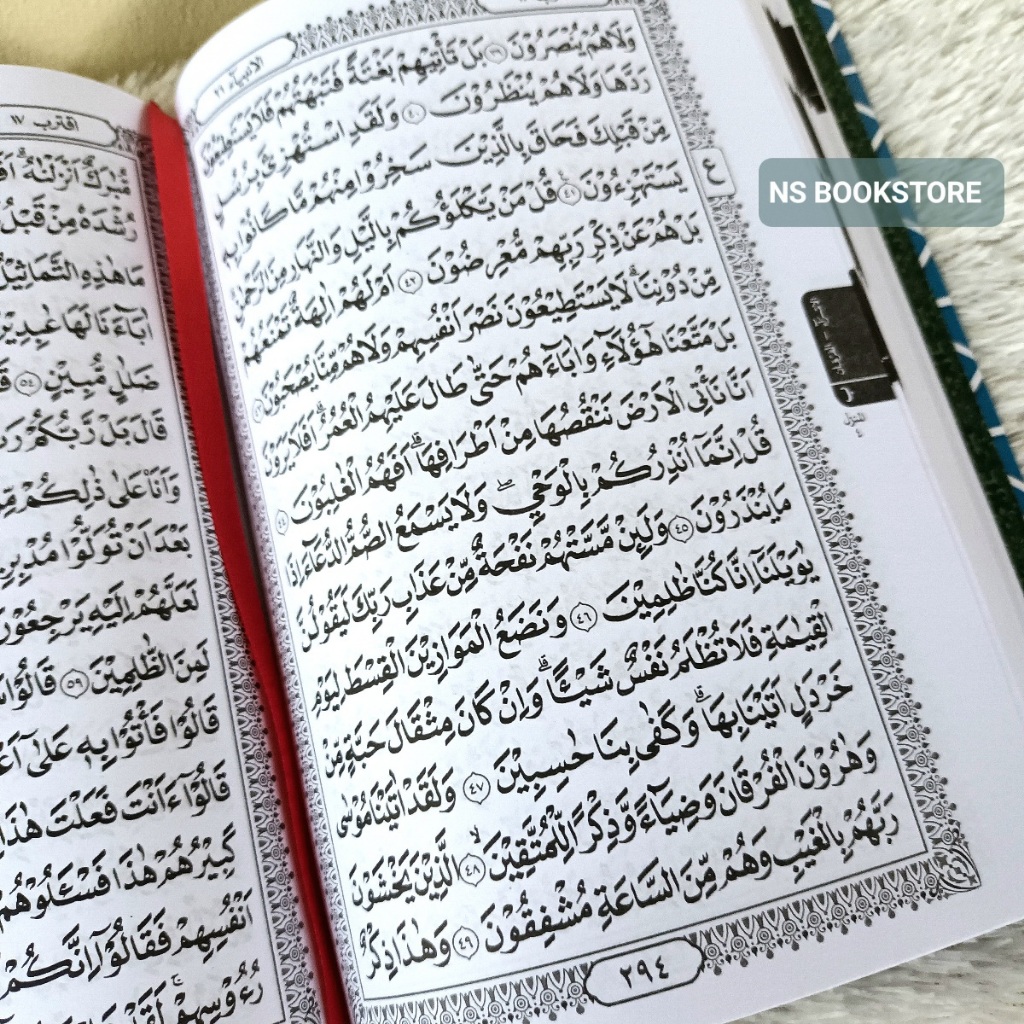 الانبياء ٢١
وَلَا هُمْ يُنْصَرُوْنَ ٣٩ بَلْ تَأْتِيْهِمْ بَغْتَةً فَتَبْهَتُهُمْ فَلَا يَسْتَطِيْعُوْنَ
رَدَّهَا وَلَا هُمْ يُنْظَرُوْنَ ٤٠ وَلَقَدِ اسْتُهْزِئَ بِرُسُلٍ
مِّنْ قَبْلِكَ فَحَاقَ بِالَّذِيْنَ سَخِرُوْا مِنْهُمْ مَّا كَانُوْا بِهٖ
يَسْتَهْزِءُوْنَ ٤١ قُلْ مَنْ يَّكْلَؤُكُمْ بِالَّيْلِ وَالنَّهَارِ مِنَ الرَّحْمٰنِ
بَلْ هُمْ عَنْ ذِكْرِ رَبِّهِمْ مُّعْرِضُوْنَ ٤٢ اَمْ لَهُمْ اٰلِهَةٌ تَمْنَعُهُمْ
مِّنْ دُوْنِنَا ۗ لَا يَسْتَطِيْعُوْنَ نَصْرَ اَنْفُسِهِمْ وَلَا هُمْ مِّنَّا يُصْحَبُوْنَ ٤٣
بَلْ مَتَّعْنَا هٰٓؤُلَاۤءِ وَاٰبَاۤءَهُمْ حَتّٰى طَالَ عَلَيْهِمُ الْعُمُرُ ۗ اَفَلَا يَرَوْنَ
اَنَّا نَأْتِى الْاَرْضَ نَنْقُصُهَا مِنْ اَطْرَافِهَا ۗ اَفَهُمُ الْغٰلِبُوْنَ ٤٤
قُلْ اِنَّمَآ اُنْذِرُكُمْ بِالْوَحْيِ ۖ وَلَا يَسْمَعُ الصُّمُّ الدُّعَاۤءَ اِذَا
مَا يُنْذَرُوْنَ ٤٥ وَلَىِٕنْ مَّسَّتْهُمْ نَفْحَةٌ مِّنْ عَذَابِ رَبِّكَ لَيَقُوْلُنَّ
يٰوَيْلَنَآ اِنَّا كُنَّا ظٰلِمِيْنَ ٤٦ وَنَضَعُ الْمَوَازِيْنَ الْقِسْطَ لِيَوْمِ
الْقِيٰمَةِ فَلَا تُظْلَمُ نَفْسٌ شَيْـًٔا ۗ وَاِنْ كَانَ مِثْقَالَ حَبَّةٍ مِّنْ
خَرْدَلٍ اَتَيْنَا بِهَا ۗ وَكَفٰى بِنَا حٰسِبِيْنَ ٤٧ وَلَقَدْ اٰتَيْنَا مُوْسٰى
وَهٰرُوْنَ الْفُرْقَانَ وَضِيَاۤءً وَّذِكْرًا لِّلْمُتَّقِيْنَ ۙ ٤٨ الَّذِيْنَ يَخْشَوْنَ
رَبَّهُمْ بِالْغَيْبِ وَهُمْ مِّنَ السَّاعَةِ مُشْفِقُوْنَ ٤٩ وَهٰذَا ذِكْرٌ
٢٩٤
ع
NS BOOKSTORE
اقترب ١٧
مُّبٰرَكٌ اَنْزَلْنٰهُ ۗ
رُشْدَهٗ مِنْ قَبْلُ
مَا هٰذِهِ التَّمَاثِيْلُ
اٰبَاۤءَنَا لَهَا عٰبِدِيْنَ
ضَلٰلٍ مُّبِيْنٍ ٥٤
قَالَ بَلْ رَّبُّكُمْ
وَاَنَا۠ عَلٰى ذٰلِكُمْ
بَعْدَ اَنْ تُوَلُّوْا مُدْبِرِيْنَ
لَعَلَّهُمْ اِلَيْهِ يَرْجِعُوْنَ
لَمِنَ الظّٰلِمِيْنَ ٥٩ قَالُوْا
قَالُوْا فَأْتُوْا بِهٖ عَلٰٓى
قَالُوْٓا ءَاَنْتَ فَعَلْتَ هٰذَا
كَبِيْرُهُمْ هٰذَا فَسْـَٔلُوْهُمْ
اَنْفُسِهِمْ فَقَالُوْٓا اِنَّكُمْ
رُءُوْسِهِمْ ۚ لَقَدْ